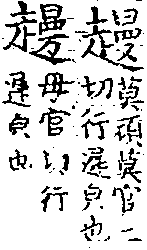 𧽼莫頑莫官二
切行遲皃也
𧽼毋官切行
遲皃也